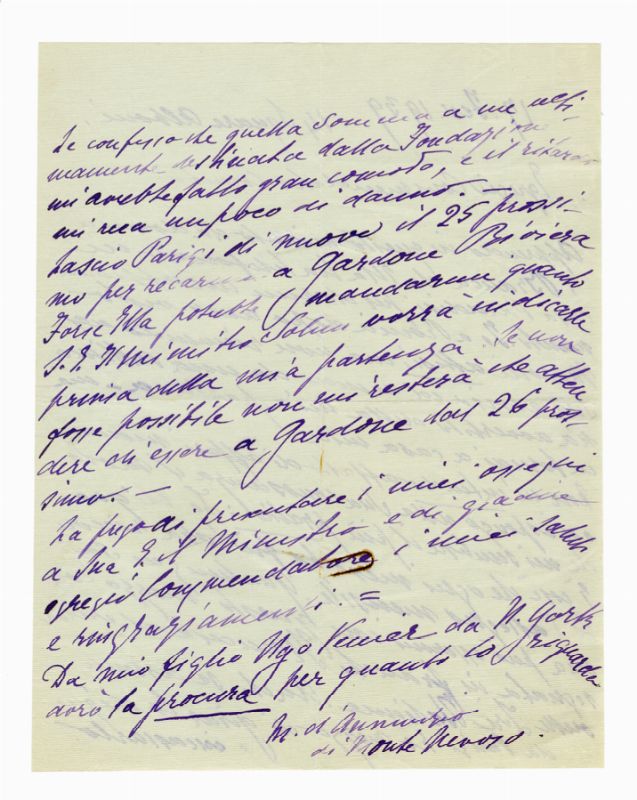 Le confesso che quella somma a me ulti-
mamente destinata dalla Fondazione
mi avrebbe fatto gran comodo, e il ritardo
mi reca un poco di danno. —
Lascio Parigi di nuovo il 25 prossi-
mo per recarmi a Gardone Riviera
Forse Ella potrebbe mandarmi quanto
S. E. Il Ministro Solmi vorrà indicarle
prima della mia partenza. Se non
fosse possibile non mi resterà che atten
dere di essere a Gardone dal 26 pros-
simo. —
La prego di presentare i miei ossequi
a Sua E. il Ministro e di gradire
egregio Commendatore i miei saluti
e ringraziamenti. =
Da mio figlio Ugo Veniero da N. York
avrò la procura per quanto lo riguarda
M. d'Annunzio
di Monte Nevoso.